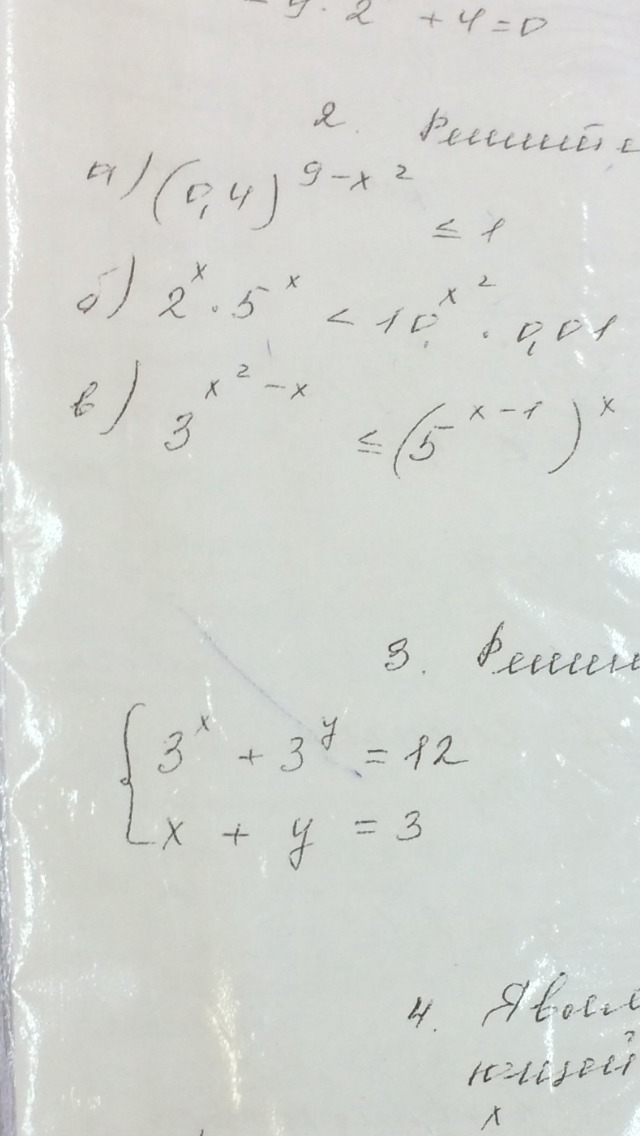 - 9 · 2 + 4 = 0
2. Решите
а) (0,4)^(9-x²) ≤ 1
б) 2^x · 5^x < 10^(x²) · 0,01
в) 3^(x²-x) ≤ (5^(x-1))^x
3. Реши
{ 3^x + 3^y = 12
x + y = 3
4. Явл
x